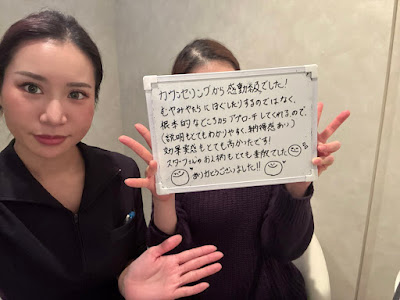 カウンセリングから感動級でした!
むやみやたらにほぐしたりするのではなく、
根本的なところからアプローチしてくれるので、
(説明もとてもわかりやすく、納得感あり)
効果実感もとても高かったです!
スターフィルのお人柄もとても素敵でした
ありがとうございました!!